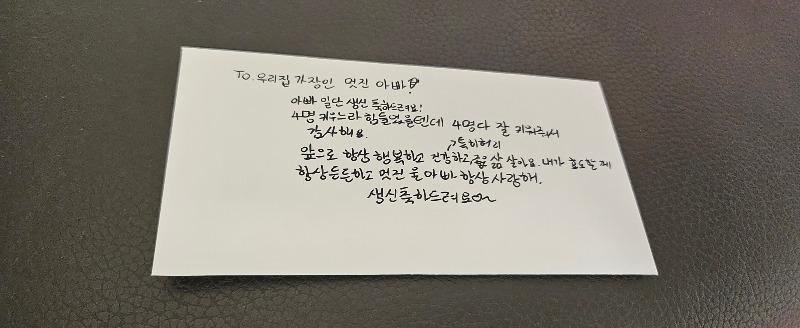 TO. 우리집 가장인 멋진 아빠!
아빠 일단 생신 축하드려요!
4명 키우느라 힘들었을텐데 4명다 잘 키워주셔서
감사해요.
↗특히허리
앞으로 항상 행복하고 건강하고, 좋은 삶 살아요. 내가 효도할게
항상든든하고 멋진 울아빠 항상 사랑해.
생신축하드려요♡